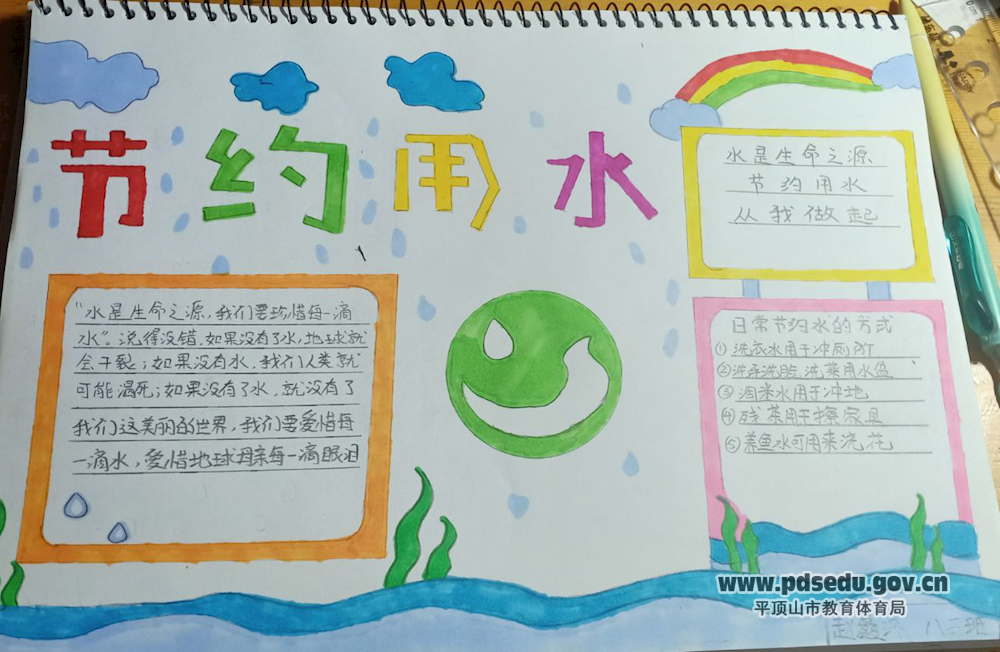 节约用水
水是生命之源
节约用水
从我做起
"水是生命之源，我们要珍惜每一滴
水"。说得没错，如果没有了水，地球就
会干裂；如果没有水，我们人类就
可能渴死；如果没有了水，就没有了
我们这美丽的世界，我们要爱惜每
一滴水，爱惜地球母亲每一滴眼泪
日常节约水的方式
①洗衣水用于冲厕所
②洗手洗脸、洗菜用水盆
③淘米水用于冲地
④残茶用于擦家具
⑤养鱼水可用来浇花
www.pdsedu.gov.cn
平顶山市教育体育局
赵 班